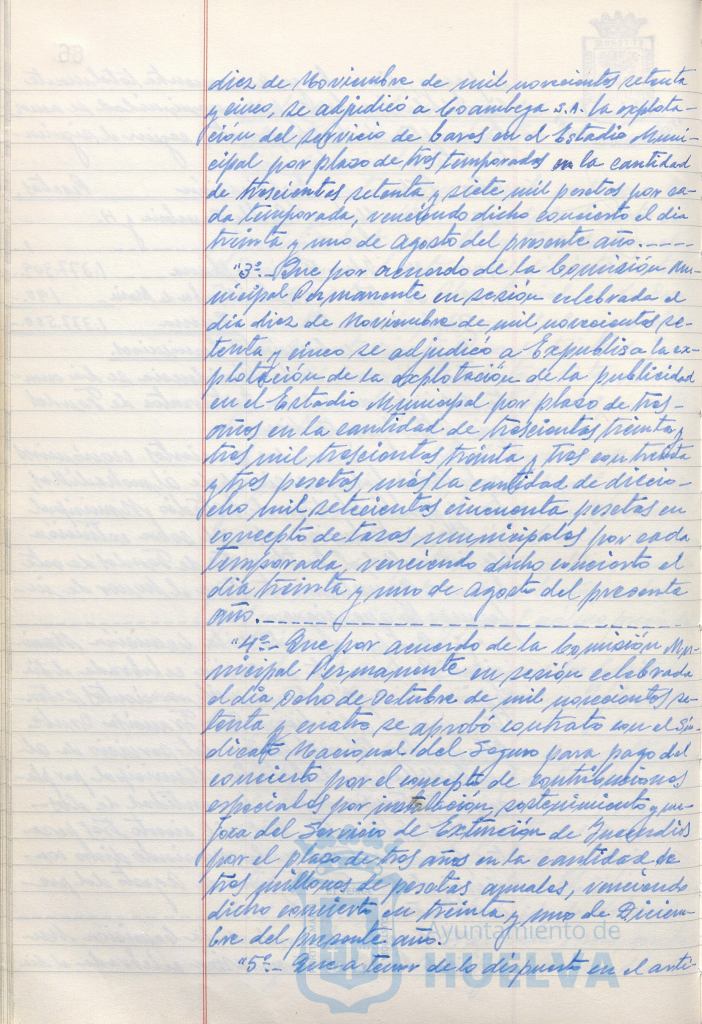 diez de Noviembre de mil novecientos setenta
y cinco, se adjudicó a Coambega S.A. la explota-
ción del servicio de Bares en el Estadio Muni-
cipal por plazo de tres temporadas en la cantidad
de trescientas setenta y siete mil pesetas por ca-
da temporada, venciendo dicho concierto el dia
treinta y uno de Agosto del presente año.-----
"3º.- Que por acuerdo de la Comisión Mu-
nicipal Permanente en sesión celebrada el
dia diez de Noviembre de mil novecientos se-
tenta y cinco se adjudicó a Expublisa la ex-
plotación de la explotación de la publicidad
en el Estadio Municipal por plazo de tres-
años en la cantidad de trescientas treinta y
tres mil trescientas treinta y tres con treinta
y tres pesetas, más la cantidad de diecio-
cho mil setecientas cincuenta pesetas en
concepto de tasas municipales por cada
temporada, venciendo dicho concierto el
dia treinta y uno de Agosto del presente
año.--------------------
"4º.- Que por acuerdo de la Comisión Mu-
nicipal Permanente en sesión celebrada
el dia ocho de Octubre de mil novecientos se-
tenta y cuatro se aprobó contrato con el Sin-
dicato Nacional del Seguro para pago del
concierto por el concepto de contribuciones
especiales por instalación, sostenimiento y me-
jora del Servicio de Extinción de Incendios
por el plazo de tres años en la cantidad de
tres millones de pesetas anuales, venciendo
dicho concierto en treinta y uno de Diciem-
bre del presente año.
"5º.- Que a tenor de lo dispuesto en el artí-
Ayuntamiento de
HUELVA